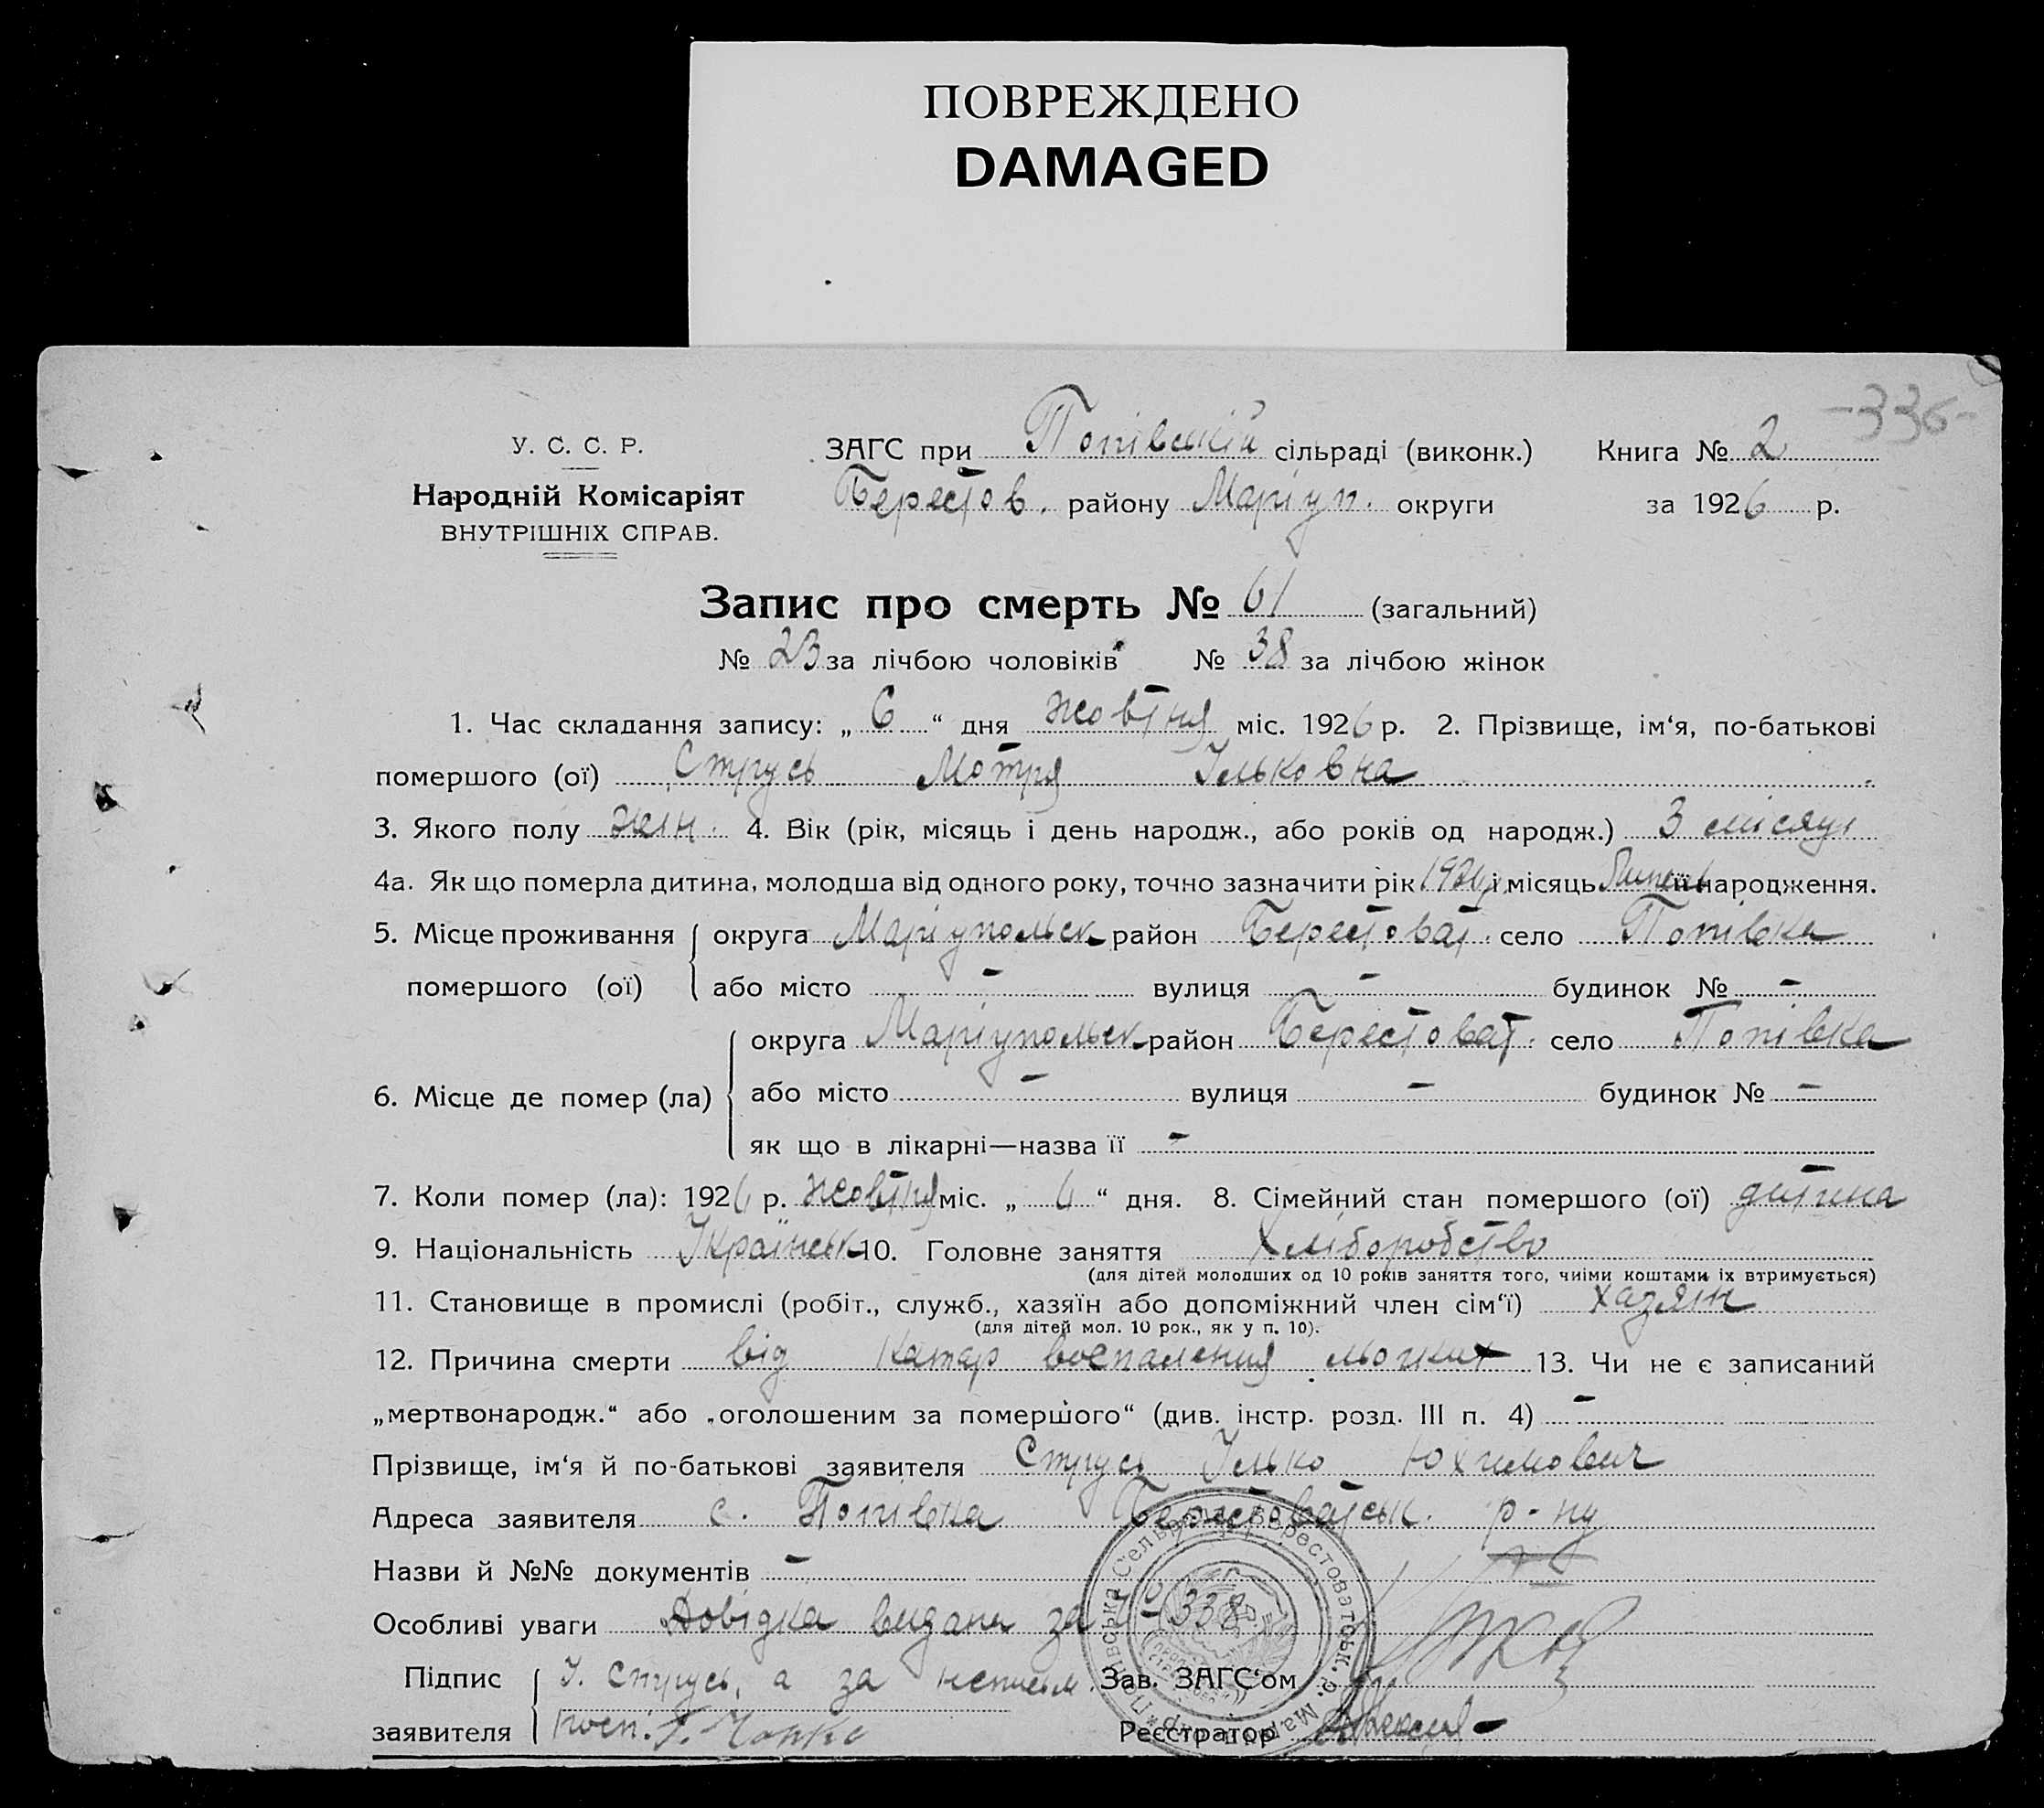 ПОВРЕЖДЕНО
DAMAGED
-336-
У. С. С. Р. ЗАГС при Попівській сільраді (виконк.) Книга № 2
Народній Комісаріят Берестов. району Маріуп. округи за 1926 р.
ВНУТРІШНІХ СПРАВ.
Запис про смерть № 61 (загальний)
№ 23 за лічбою чоловіків № 38 за лічбою жінок
1. Час складання запису: „ 6 “ дня жовтня міс. 1926 р. 2. Прізвище, ім‘я, по-батькові
помершого (ої) Струсь Мотря Ільковна
3. Якого полу жін. 4. Вік (рік, місяць і день народж., або років од народж.) 3 місяці
4а. Як що померла дитина, молодша від одного року, точно зазначити рік 1926 і місяць Липень її народження.
5. Місце проживання округа Маріупольск район Берестоват. село Попівка
помершого (ої) або місто - вулиця - будинок № -
округа Маріупольск район Берестоват. село Попівка
6. Місце де помер (ла) або місто - вулиця - будинок № -
як що в лікарні—назва її -
7. Коли помер (ла): 1926 р. жовтня міс. „ 6 “ дня. 8. Сімейний стан помершого (ої) дитина
9. Національність Українськ 10. Головне заняття Хліборобство
(для дітей молодших од 10 років заняття того, чиїми коштами їх втримується)
11. Становище в промислі (робіт., служб., хазяїн або допоміжний член сім‘ї) хазяін
(для дітей мол. 10 рок., як у п. 10).
12. Причина смерти від Катар воспаления льогких 13. Чи не є записаний
„мертвонародж.“ або „оголошеним за помершого“ (див. інстр. розд. III п. 4) -
Прізвище, ім‘я й по-батькові заявителя Струсь Ілько Юхимович
Адреса заявителя с. Попівка Берестоватськ. р-ну
Назви й №№ документів -
Особливі уваги Довідка видана за № 338
Підпис І. Струсь, а за неписьм. Зав. ЗАГС‘ом
заявителя Реєстратор